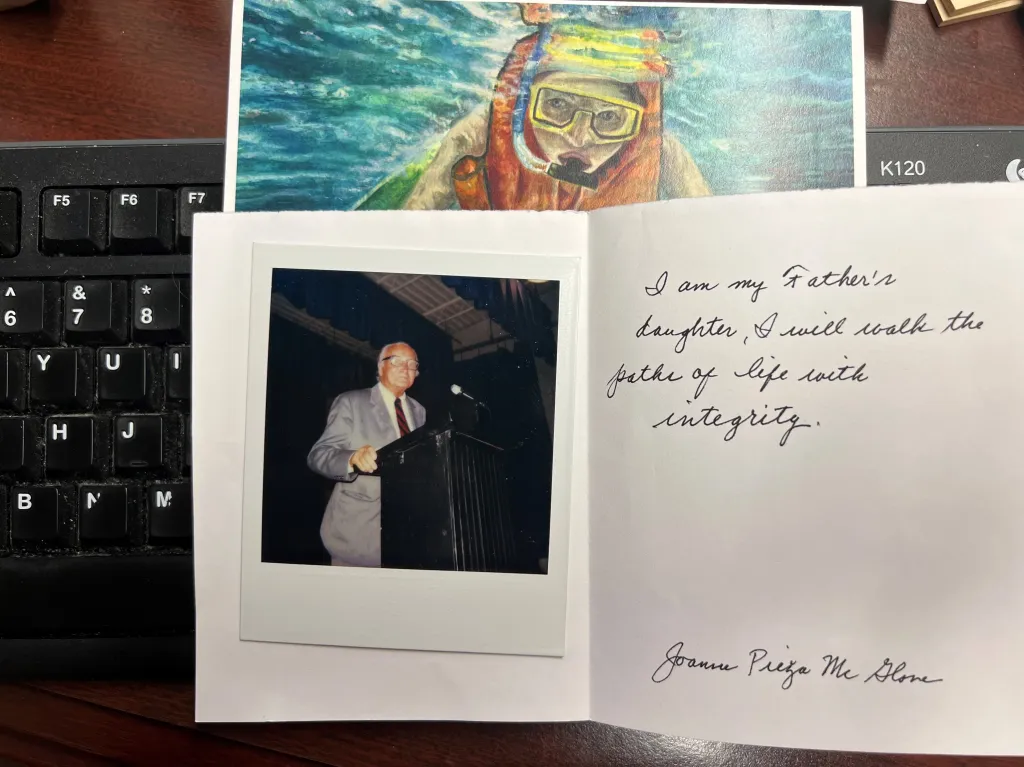 K120
F5 F6 F7
^ & *
6 7 8
Y U I
H J
B N M
I am my Father's
daughter, I will walk the
paths of life with
integrity.
Joanne Pieza Mc Glone